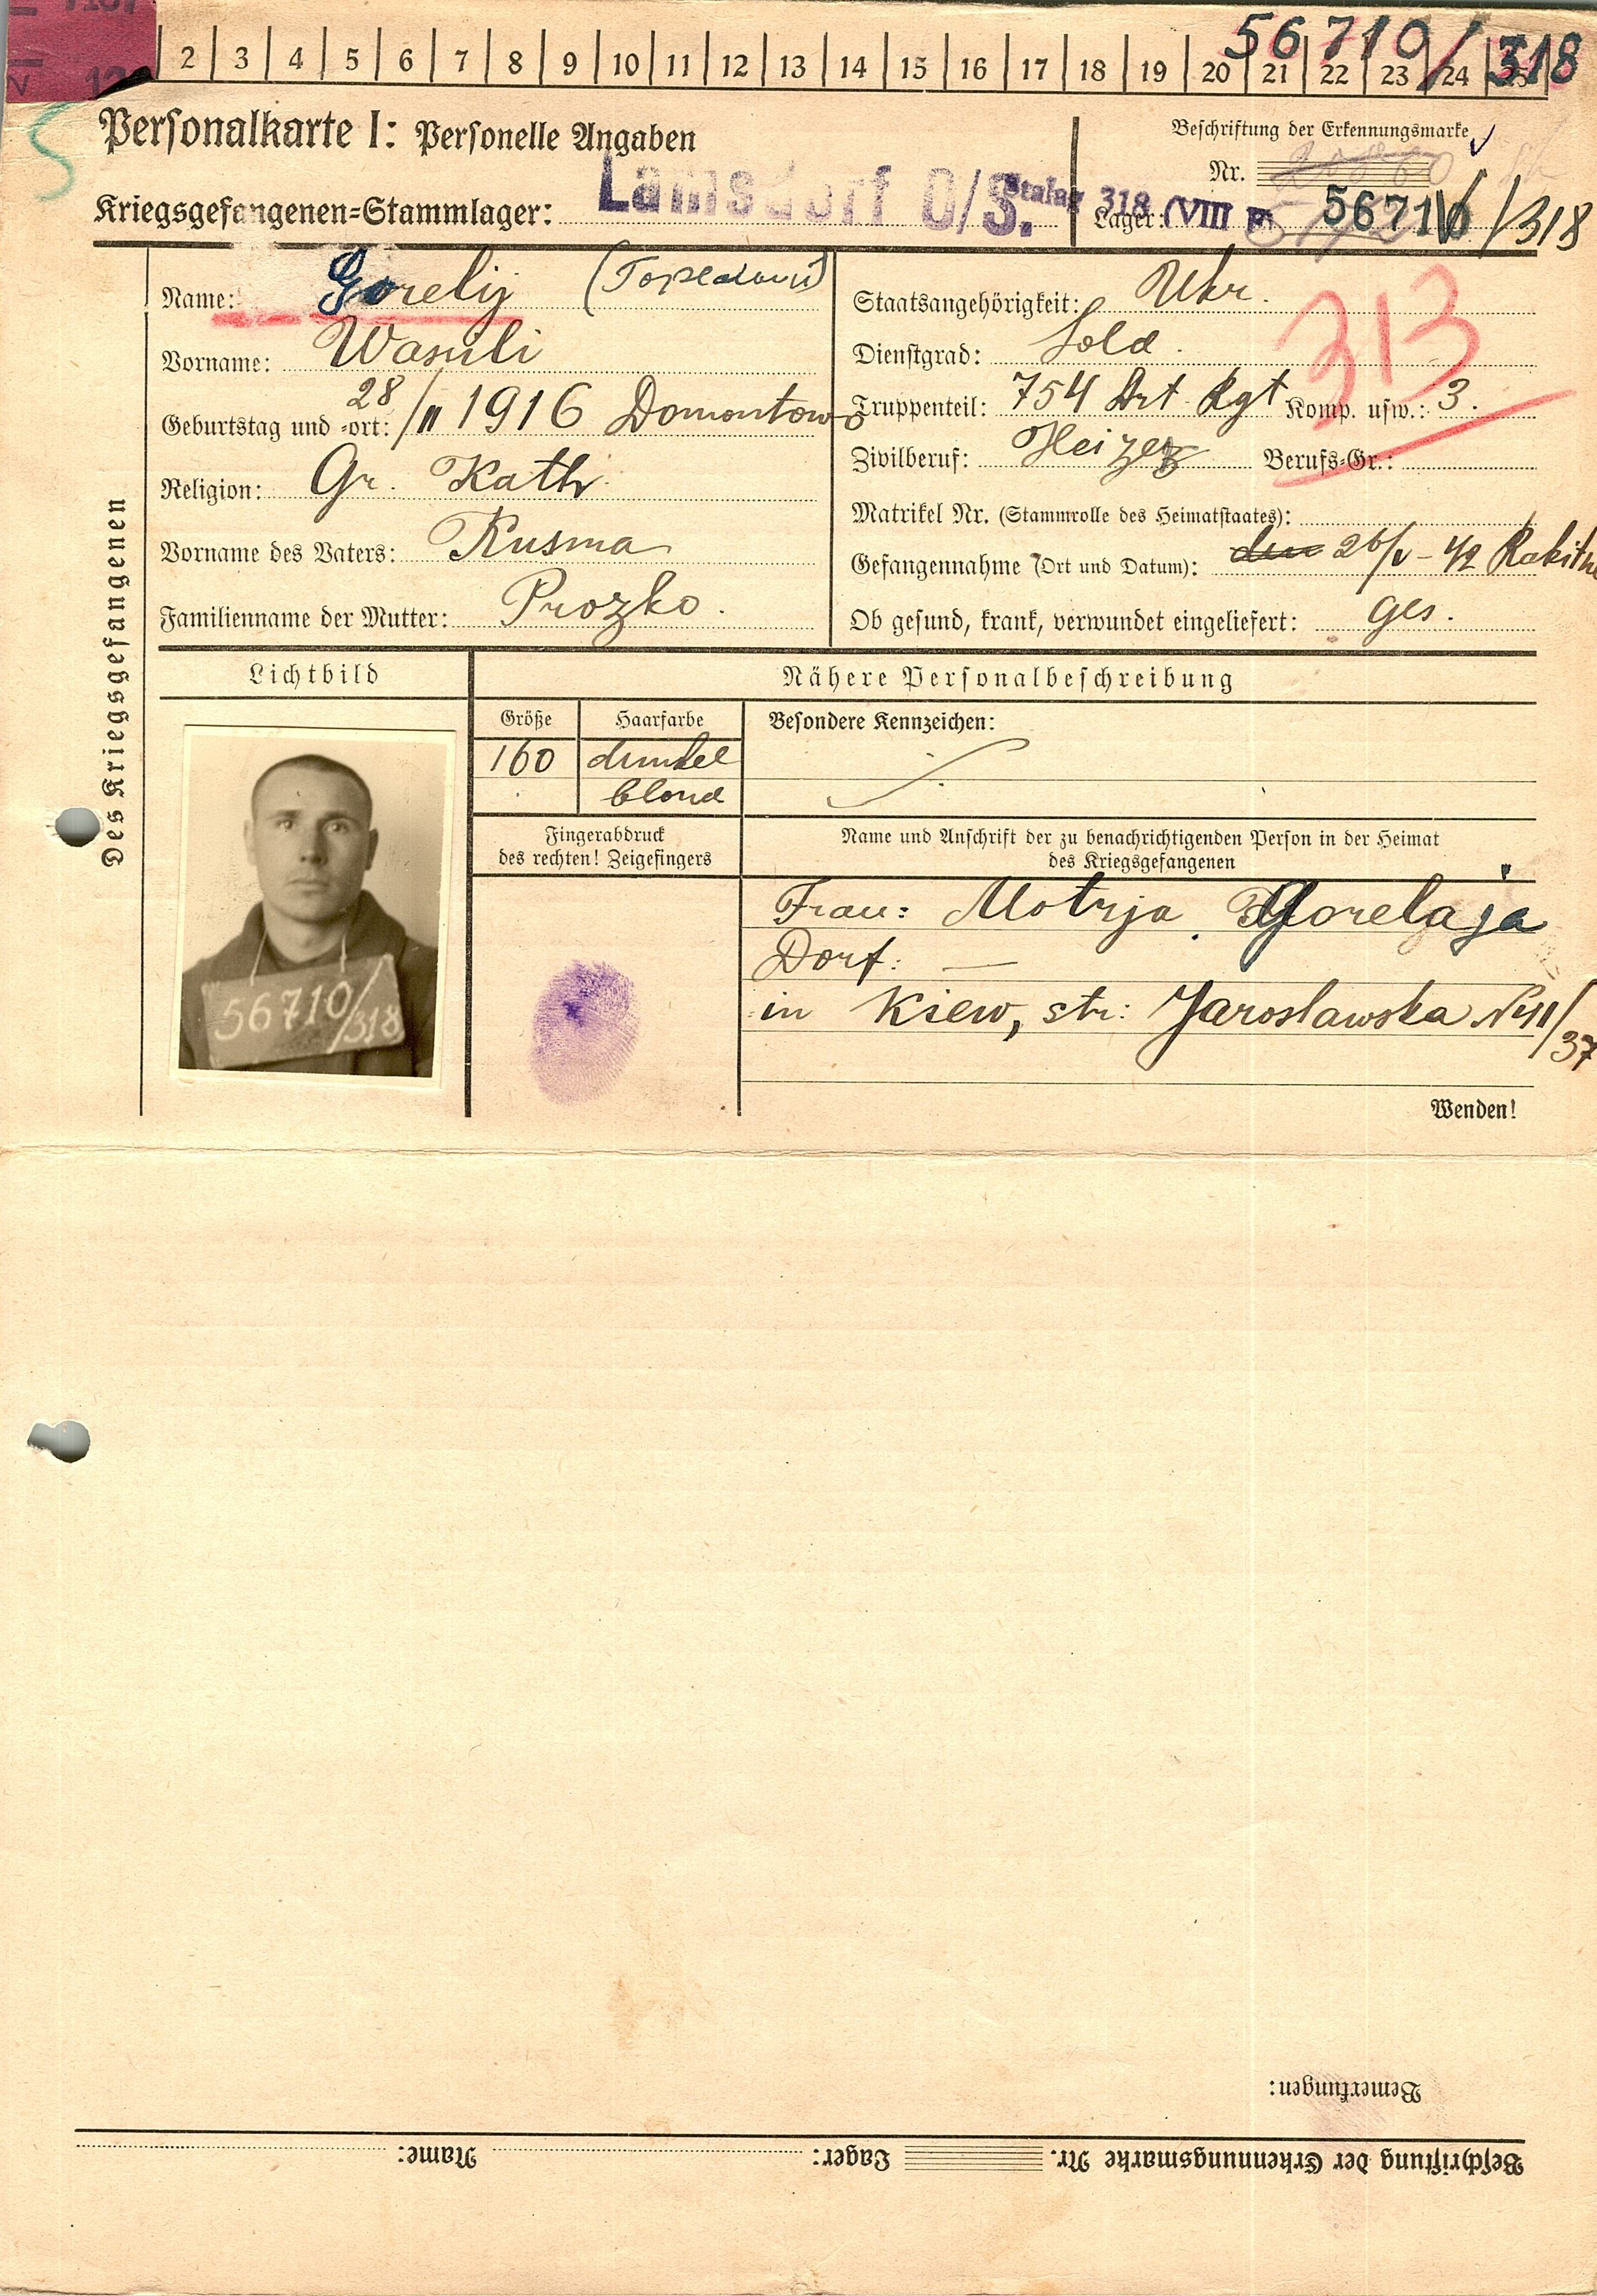 2 3 4 5 6 7 8 9 10 11 12 13 14 15 16 17 18 19 20 21 22 23 24 25
56710/318
Personalkarte I: Personelle Angaben
Beschriftung der Erkennungsmarke
Nr.
Kriegsgefangenen=Stammlager: Lamsdorf O/S.
Stalag 318 (VIII F)
Lager: 56710/318
Des Kriegsgefangenen
Name: Gorelij
Vorname: Wasili
Geburtstag und =ort: 28/II 1916 Domontowo
Religion: Gr. Kath.
Vorname des Vaters: Kusma
Familienname der Mutter: Prozko.
Staatsangehörigkeit: Ukr.
313
Dienstgrad: Sold.
Truppenteil: 754 Art. Rgt Komp. usw.: 3.
Zivilberuf: Heizer Berufs=Gr.:
Matrikel Nr. (Stammrolle des Heimatstaates):
Gefangennahme (Ort und Datum): den 26/V-42
Ob gesund, krank, verwundet eingeliefert: ges.
Lichtbild
56710/318
Nähere Personalbeschreibung
Größe Haarfarbe Besondere Kennzeichen:
160 dunkel
blond
Fingerabdruck
des rechten! Zeigefingers
Name und Anschrift der zu benachrichtigenden Person in der Heimat
des Kriegsgefangenen
Frau: Motrja Gorelaja
Dorf: —
in Kiew, str: Jaroslawska
Wenden!
Bemerkungen:
Beschriftung der Erkennungsmarke Nr. Lager: Name: